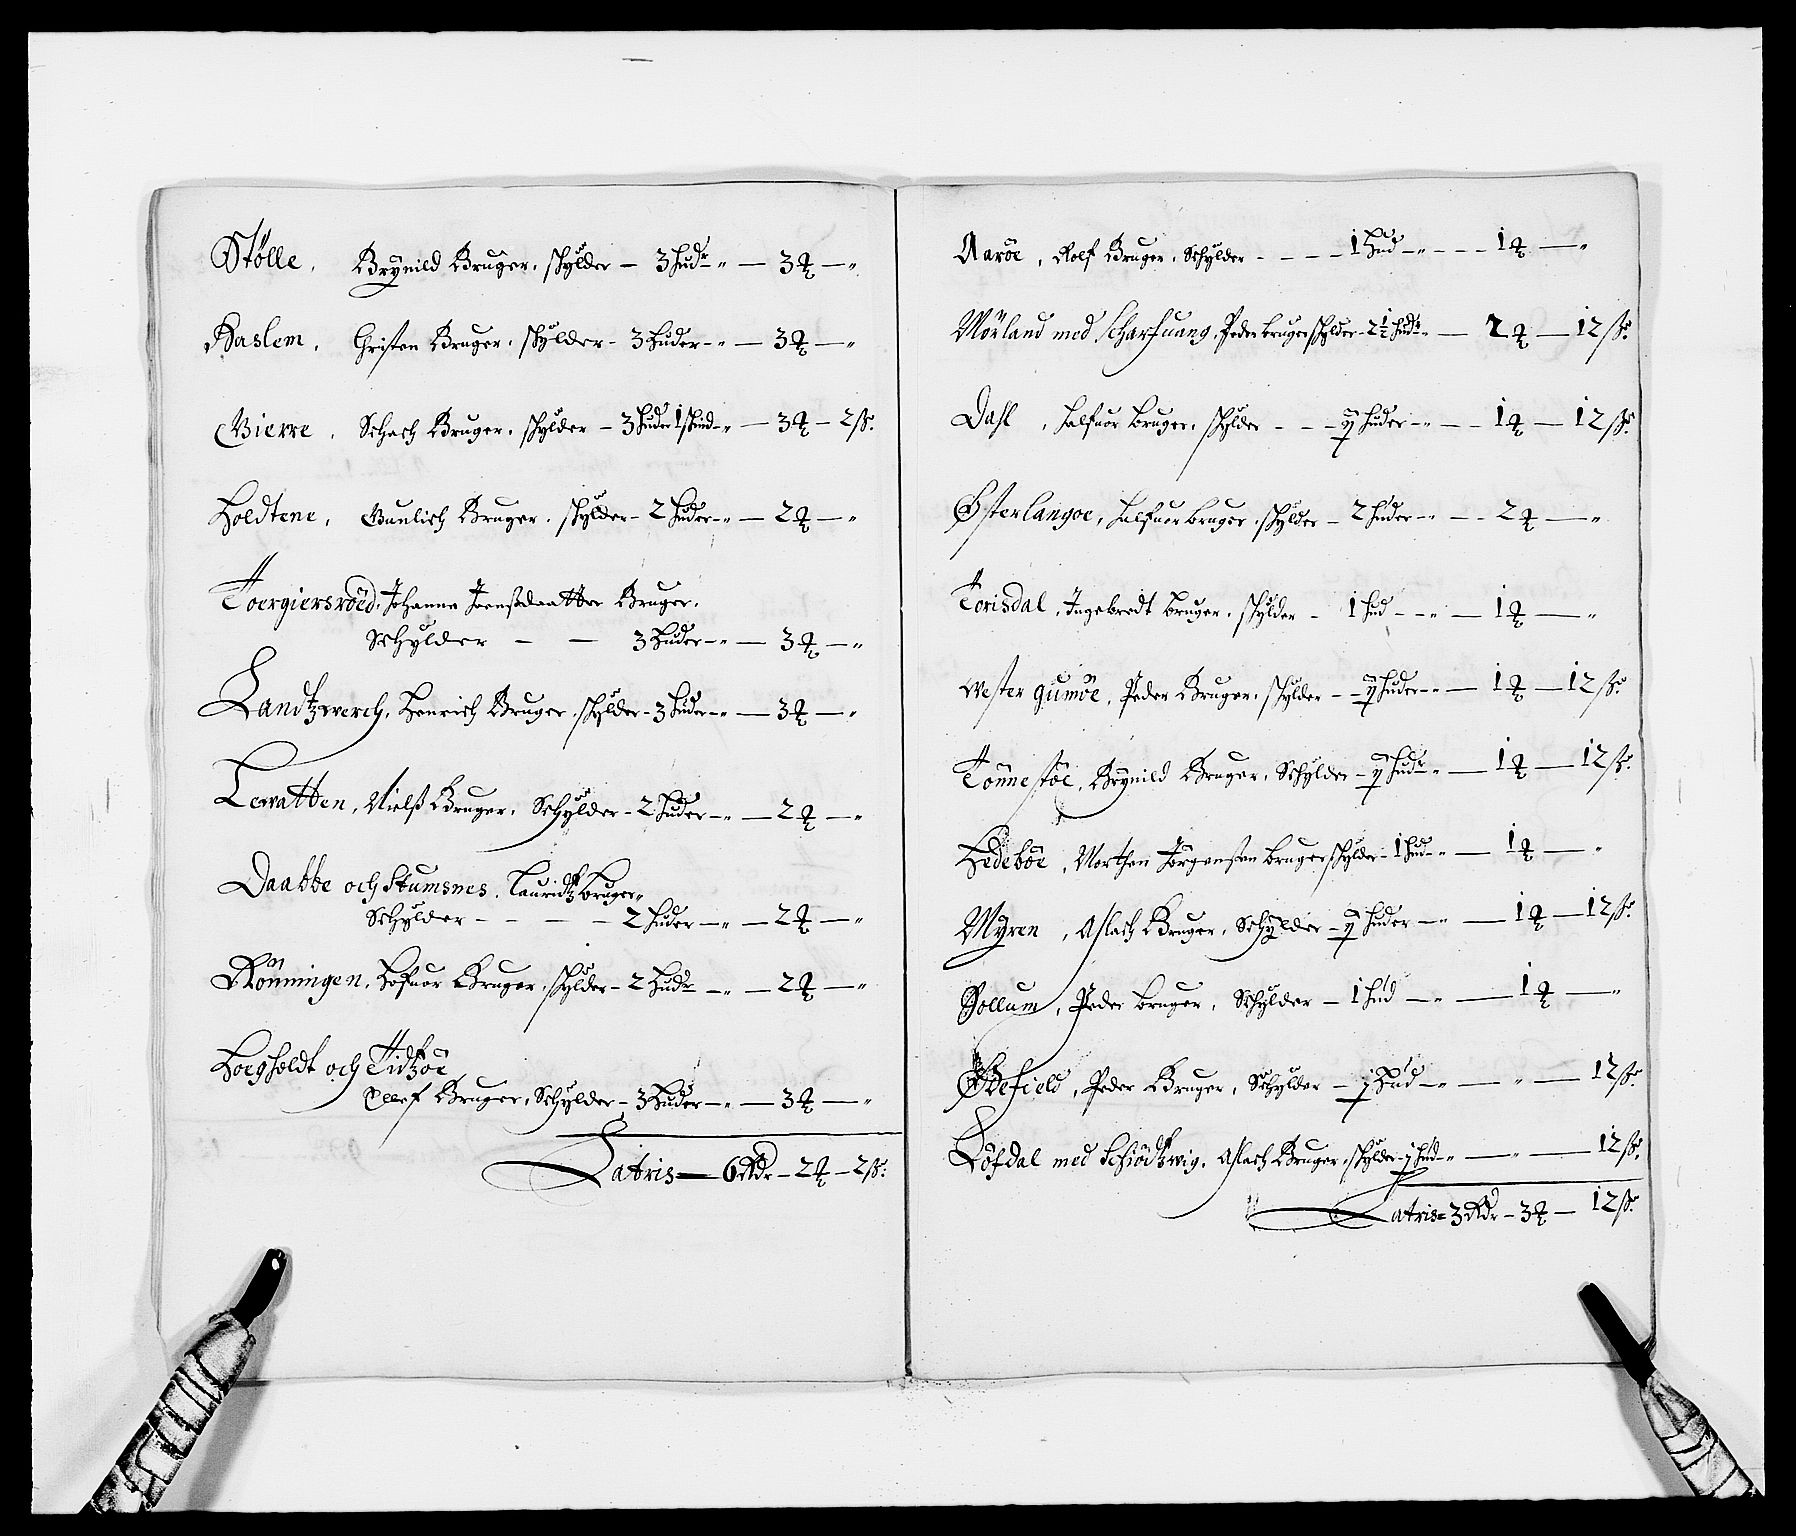 Stølle, Brynild Bruger, schylder — 3 hudr — „ — 3 ₰ — „
Haslem, Christen Bruger, schylder — 3 huder — „ — 3 ₰ — „
Bierre, Schach Bruger, schylder — 3 huder 1 skind — „ — 3 ₰ — 2 ß.
Holdtene, Gunlich Bruger, schylder — 2 huder — „ — 2 ₰ — „
Toergiersröed, Johanne Joenßdaatter Bruger,
Schylder — — 3 huder — „ — 3 ₰ — „
Landtzwerch, Henrich Bruger, schylder — 3 huder — „ — 3 ₰ — „
Lewatten, Nielß Bruger, Schylder — 2 huder — „ — 2 ₰ — „
Daabbe och Stumsnes, Lauridtz bruger„
Schylder — — — — 2 huder — „ — 2 ₰ — „
Rönningen, Hofuor Bruger, schylder — 2 hudr — „ — 2 ₰ — „
Hoegholdt och Tidtzöe
Ellef Bruger, Schylder — 3 huder — „ — 3 ₰ — „
Latris — 6 Rdr — 2 ₰ — 2 ß:
Aaröe, Rolf Bruger, Schylder — — — — 1 hud — „ — — — 1 ₰ — „
Mörland med Scharfuang, Peder bruger schylder — 2 1/2 hudr „ — 2 ₰ — 12 ß.
Dahl, Halfuor bruger, schylder — — — ÿ huder — „ — — 1 ₰ — 12 ß.
Østerlangøe, Halfuor bruger, schylder — 2 huder — „ — — 2 ₰ — „
Torisdal, Ingebredt bruger, schylder — 1 hud — — „ — 1 ₰ — „
wester gumöe, Peder Bruger, schylder — — ÿ huder — „ — 1 ₰ — 12 ß.
Tönnestöe, Brynild Bruger, Schylder — ÿ hudr „ — 1 ₰ — 12 ß.
Hedeböe, Morthen Jörgensen bruger schylder — 1 hud — „ — 1 ₰ — „
Myren, Aslach Bruger, Schylder — ÿ huder — „ — 1 ₰ — 12 ß.
Gollum, Peder bruger, Schylder — 1 hud — „ — 1 ₰ — „
Ødefield, Peder Bruger, Schylder — j hud — „ — „ — 12 ß.
Löfdal med Schiödtzwig, Aslach Bruger, schylder — j hud — „ — „ — 12 ß.
Latris = 3 Rdr — 3 ₰ — 12 ß.